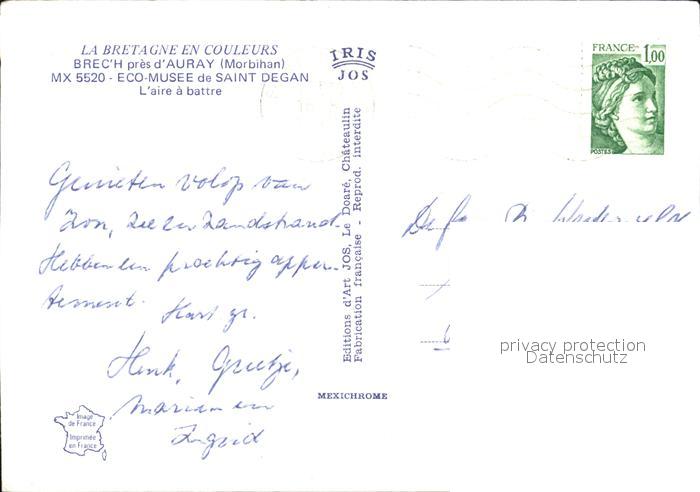 LA BRETAGNE EN COULEURS
BREC'H près d'AURAY (Morbihan)
MX 5520 - ECO-MUSEE de SAINT DEGAN
L'aire à battre
IRIS
JOS
FRANCE 1,00
POSTES
Genieten volop van
Zon, Zee en Zandstrand.
Hebben een prachtig apper-
tement. Hart gr.
Henk, Greetje,
Marian en
Ingrid
Editions d'Art JOS, Le Doaré, Châteaulin
Fabrication française - Reprod. interdite
MEXICHROME
Image
de France
Imprimée
en France
privacy protection
Datenschutz